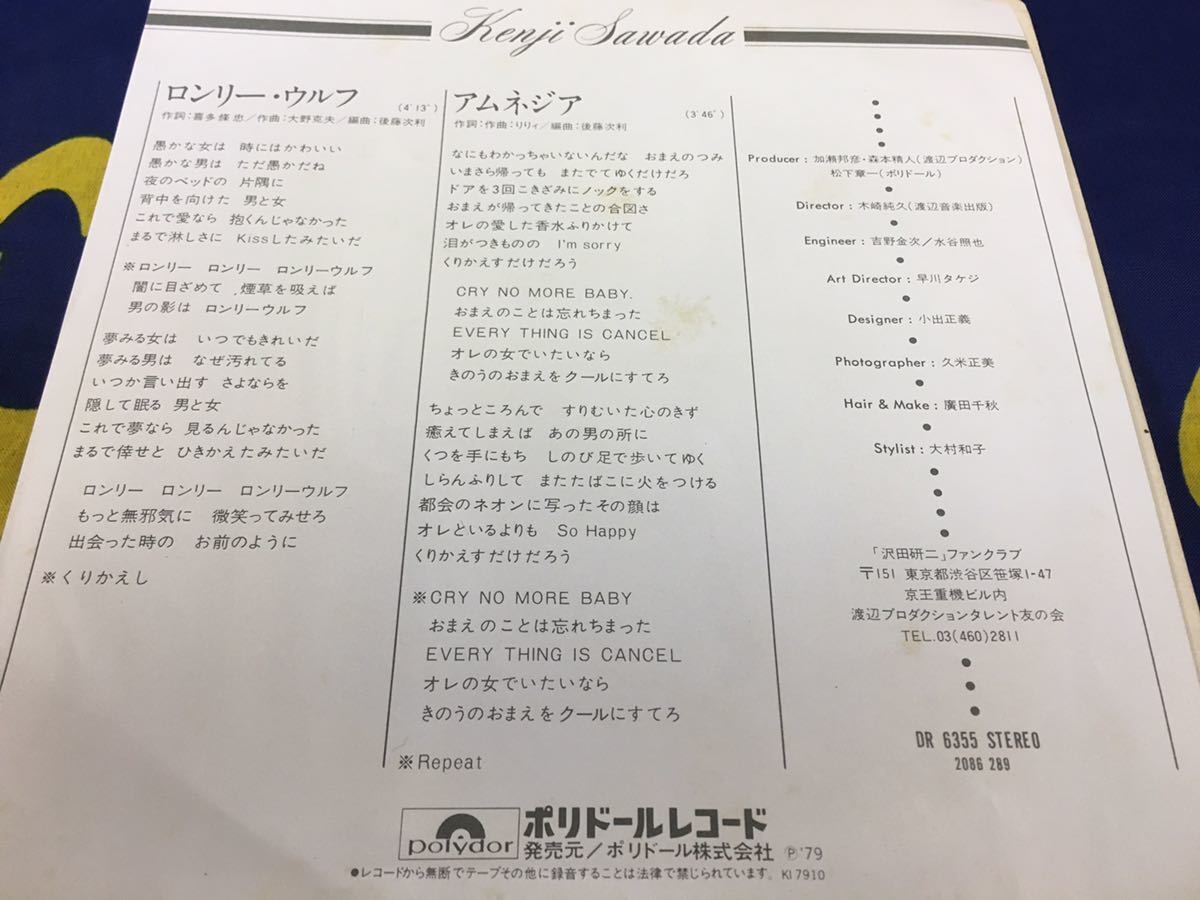 Kenji Sawada
ロンリー・ウルフ (4'13")
作詞：喜多條 忠／作曲：大野克夫／編曲：後藤次利
愚かな女は 時にはかわいい
愚かな男は ただ愚かだね
夜のベッドの 片隅に
背中を向けた 男と女
これで愛なら 抱くんじゃなかった
まるで淋しさに Kissしたみたいだ
※ロンリー ロンリー ロンリーウルフ
闇に目ざめて 煙草を吸えば
男の影は ロンリーウルフ
夢みる女は いつでもきれいだ
夢みる男は なぜ汚れてる
いつか言い出す さよならを
隠して眠る 男と女
これで夢なら 見るんじゃなかった
まるで倖せと ひきかえたみたいだ
ロンリー ロンリー ロンリーウルフ
もっと無邪気に 微笑ってみせろ
出会った時の お前のように
※くりかえし
アムネジア (3'46")
作詞：作曲：りりィ／編曲：後藤次利
なにもわかっちゃいないんだな おまえのつみ
いまさら帰っても またでてゆくだけだろ
ドアを3回こきざみにノックをする
おまえが帰ってきたことの合図さ
オレの愛した香水ふりかけて
泪がつきものの I'm sorry
くりかえすだけだろう
CRY NO MORE BABY.
おまえのことは忘れちまった
EVERY THING IS CANCEL
オレの女でいたいなら
きのうのおまえをクールにすてろ
ちょっところんで すりむいた心のきず
癒えてしまえば あの男の所に
くつを手にもち しのび足で歩いてゆく
しらんふりして またたばこに火をつける
都会のネオンに写ったその顔は
オレといるよりも So Happy
くりかえすだけだろう
※CRY NO MORE BABY
おまえのことは忘れちまった
EVERY THING IS CANCEL
オレの女でいたいなら
きのうのおまえをクールにすてろ
※Repeat
Producer：加瀬邦彦・森本精人(渡辺プロダクション)
松下章一(ポリドール)
Director：木崎純久(渡辺音楽出版)
Engineer：吉野金次／水谷照也
Art Director：早川タケジ
Designer：小出正義
Photographer：久米正美
Hair & Make：廣田千秋
Stylist：大村和子
「沢田研二」ファンクラブ
〒151 東京都渋谷区笹塚1-47
京王重機ビル内
渡辺プロダクションタレント友の会
TEL.03(460)2811
DR 6355 STEREO
2086 289
polydor ポリドールレコード
発売元／ポリドール株式会社 Ⓟ'79
●レコードから無断でテープその他に録音することは法律で禁じられています。KI 7910